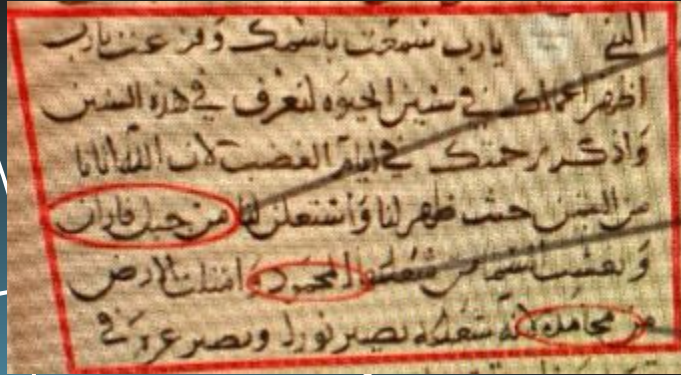 النبي يارب سمعت باسمك وفزعت يارب
اظهر اعمالك في سنين الحيوه لتعرف في هذه السنين
واذكر رحمتك في ايام الغضب لان الله اتانا
من اليمن حيث ظهر لنا واستعلن لنا من جبل فاران
المحمود وامتلت الارض
من محامده لانه شعاعه نصير نورا ونصير عزه في